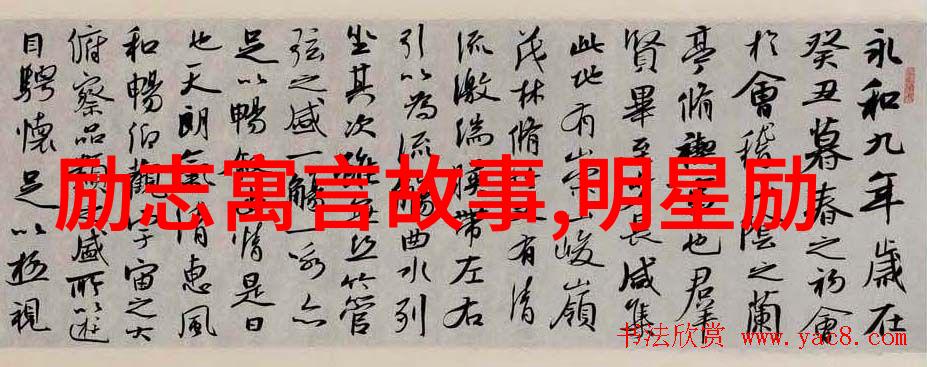 永和九年歲在
癸丑暮春之初會
於會稽陰之蘭
亭脩禊也羣
賢畢至長咸集
此地有崇峻嶺
茂林脩有清
流激湍暎帶左右
引以為流觴曲水列
坐其次雖無竹管
弦之盛一觴一詠亦
足以暢情是日
也天朗氣清惠風
和暢仰觀宇宙之大
俯察品類盛所以遊
目騁懷足以極視
励志寓言故事,明星励
书法欣赏 www.yac8.com